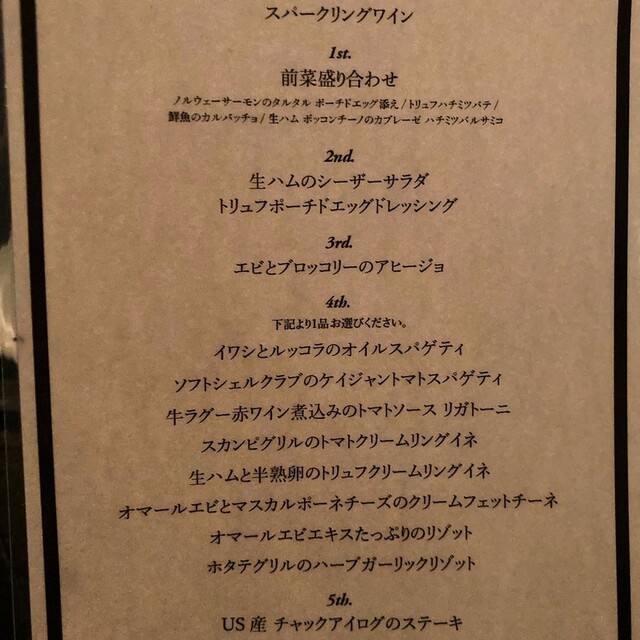 スパークリングワイン
1st.
前菜盛り合わせ
ノルウェーサーモンのタルタル ポーチドエッグ添え/トリュフハチミツパテ/
鮮魚のカルパッチョ/生ハム ボッコンチーノのカプレーゼ ハチミツバルサミコ
2nd.
生ハムのシーザーサラダ
トリュフポーチドエッグドレッシング
3rd.
エビとブロッコリーのアヒージョ
4th.
下記より1品お選びください。
イワシとルッコラのオイルスパゲティ
ソフトシェルクラブのケイジャントマトスパゲティ
牛ラグー赤ワイン煮込みのトマトソース リガトーニ
スカンピグリルのトマトクリームリングイネ
生ハムと半熟卵のトリュフクリームリングイネ
オマールエビとマスカルポーネチーズのクリームフェットチーネ
オマールエビエキスたっぷりのリゾット
ホタテグリルのハーブガーリックリゾット
5th.
US産 チャックアイログのステーキ